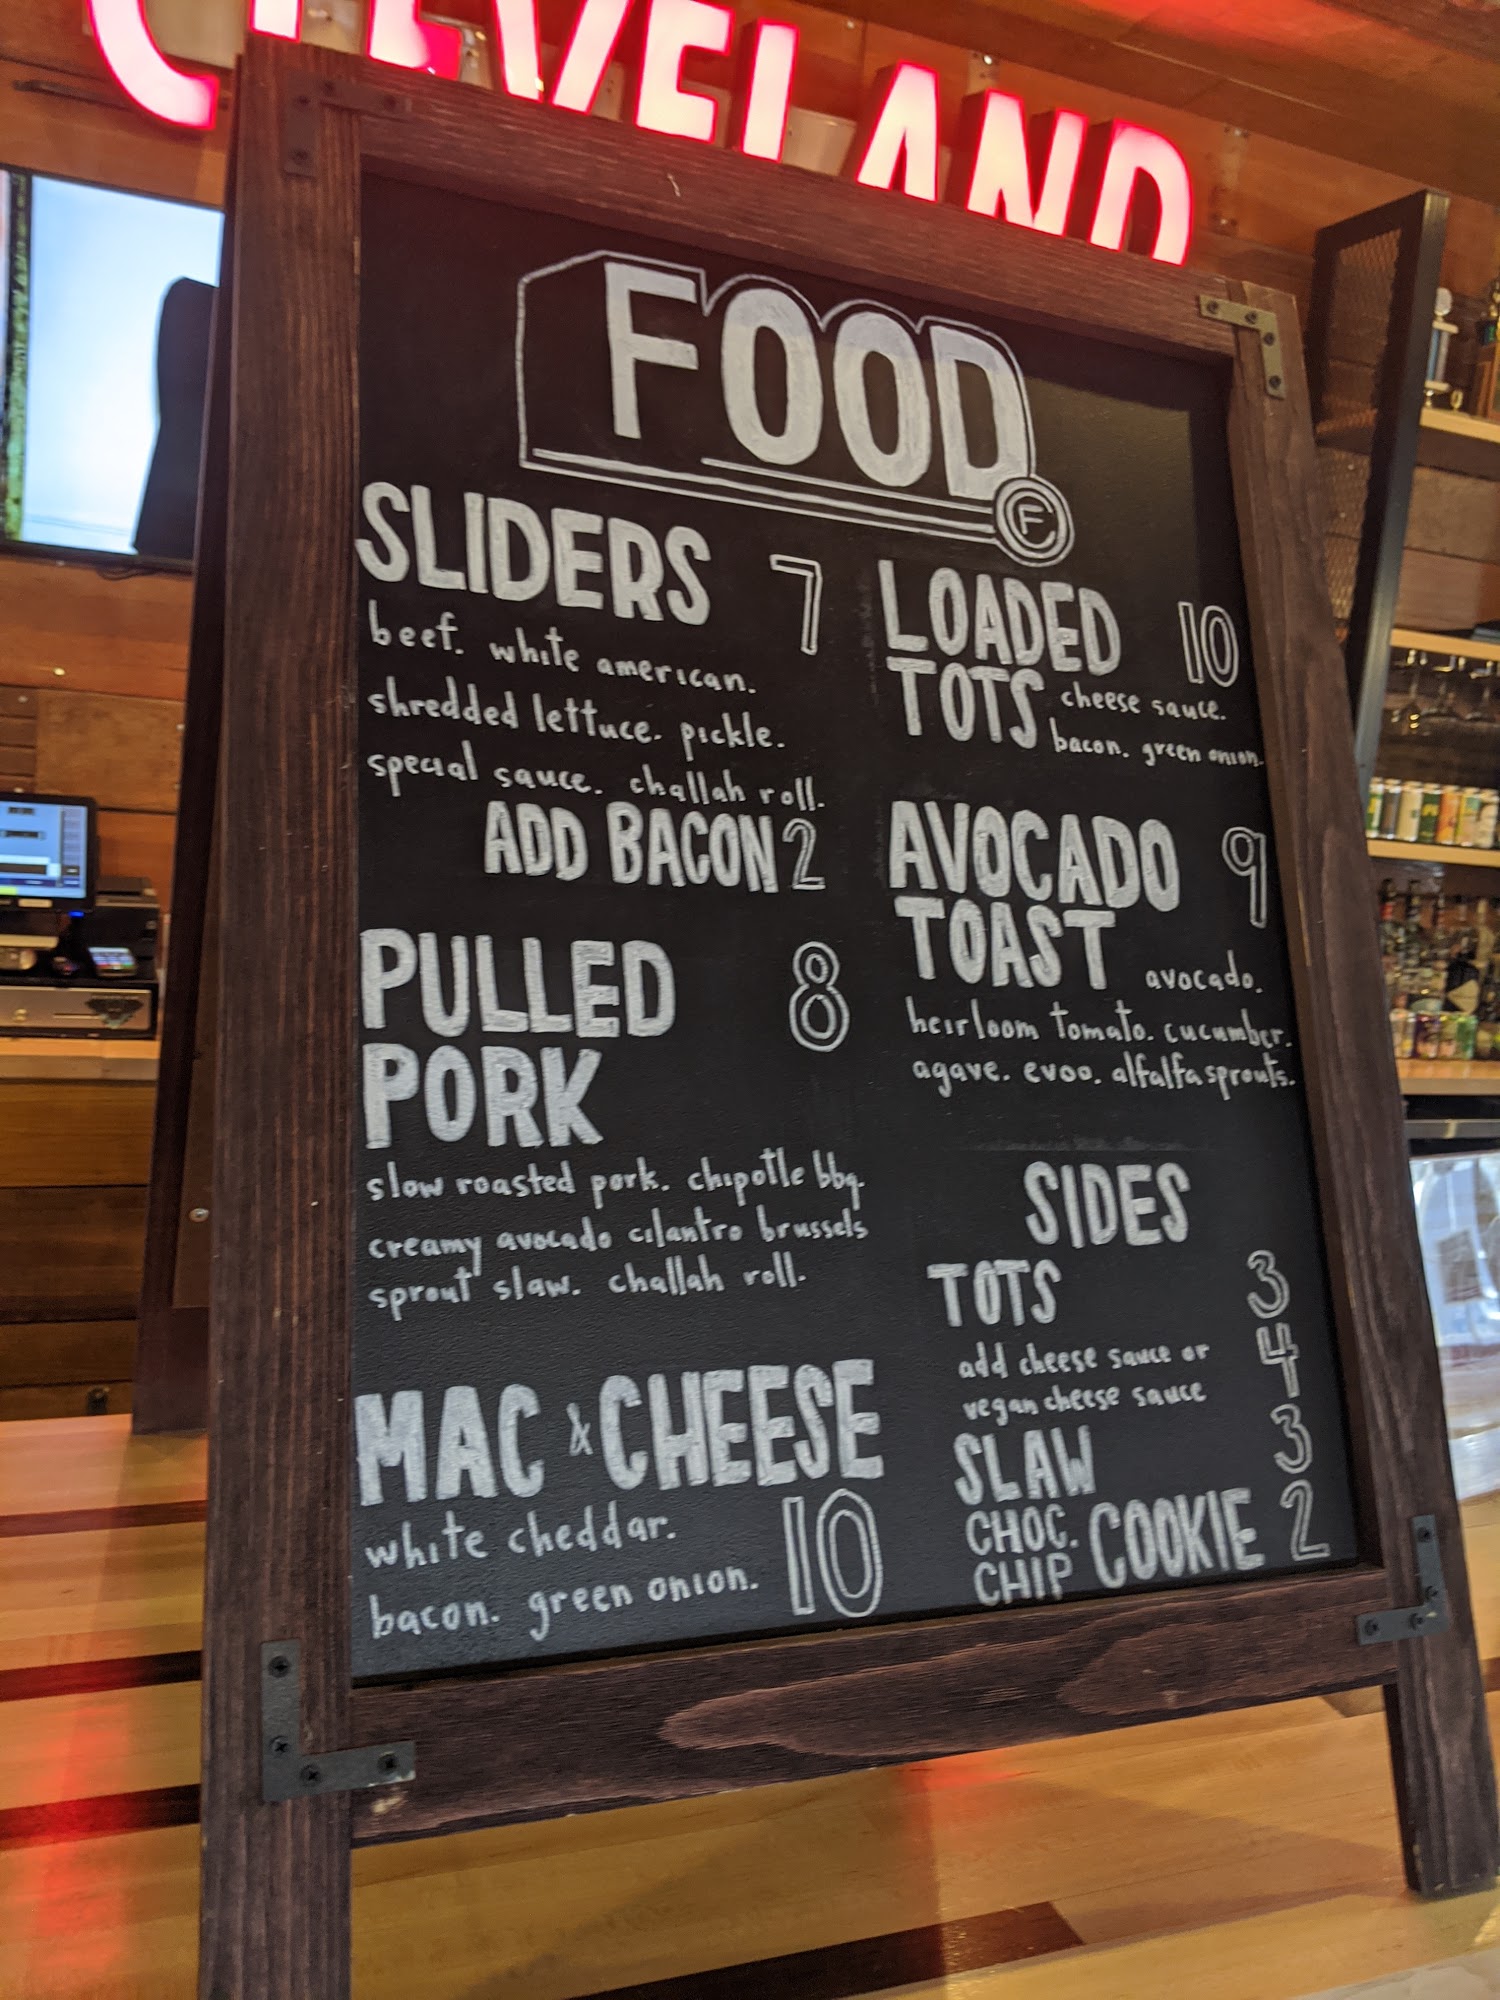 CLEVELAND
FOOD
CF
SLIDERS 7
beef. white american.
shredded lettuce. pickle.
special sauce. challah roll.
ADD BACON 2
PULLED 8
PORK
slow roasted pork. chipotle bbq.
creamy avocado cilantro brussels
sprout slaw. challah roll.
MAC & CHEESE
white cheddar. 10
bacon. green onion.
LOADED 10
TOTS cheese sauce.
bacon. green onion.
AVOCADO 9
TOAST avocado.
heirloom tomato. cucumber.
agave. evoo. alfalfa sprouts.
SIDES
TOTS 3
add cheese sauce or 4
vegan cheese sauce
SLAW 3
CHOC. COOKIE 2
CHIP